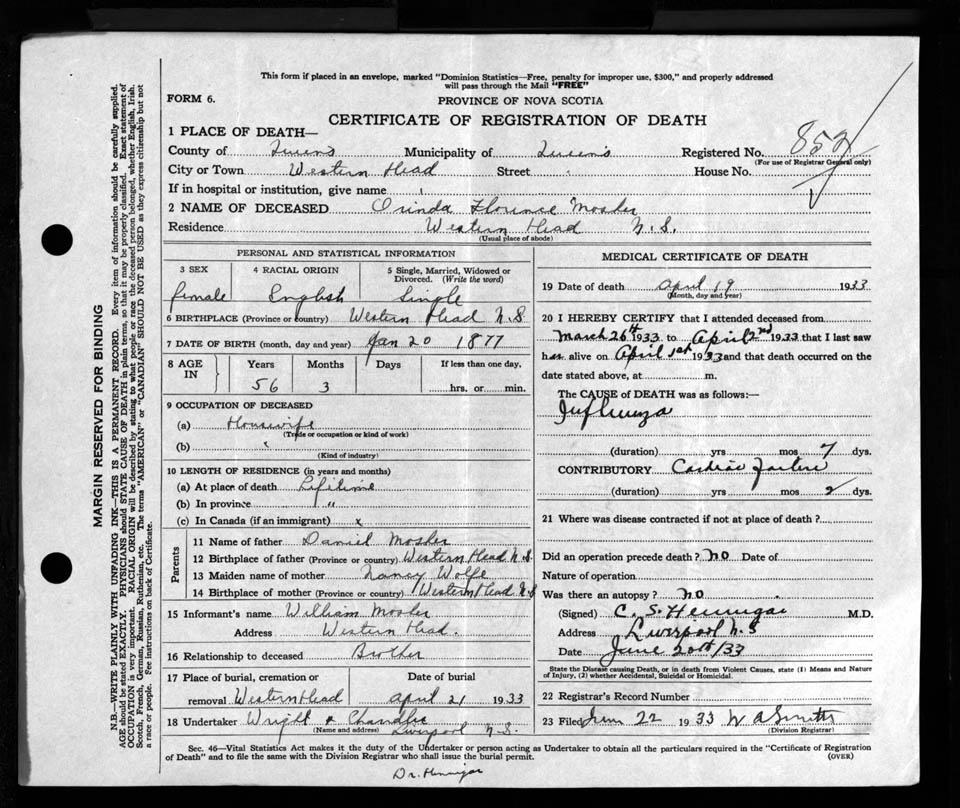 This form if placed in an envelope, marked "Dominion Statistics—Free, penalty for improper use, $300," and properly addressed
will pass through the Mail "FREE"
FORM 6. PROVINCE OF NOVA SCOTIA
CERTIFICATE OF REGISTRATION OF DEATH
1 PLACE OF DEATH—
County of Queens Municipality of Queens Registered No. 852
(For use of Registrar General only)
City or Town Western Head Street House No.
If in hospital or institution, give name
2 NAME OF DECEASED Orinda Florence Mosher
Residence Western Head N.S.
(Usual place of abode)
PERSONAL AND STATISTICAL INFORMATION
3 SEX 4 RACIAL ORIGIN 5 Single, Married, Widowed or
Divorced. (Write the word)
female English Single
6 BIRTHPLACE (Province or country) Western Head N.S.
7 DATE OF BIRTH (month, day and year) Jan 20 1877
8 AGE IN Years Months Days If less than one day,
56 3 hrs. or min.
9 OCCUPATION OF DECEASED
(a) Housewife
(Trade or occupation or kind of work)
(b) "
(Kind of industry)
10 LENGTH OF RESIDENCE (in years and months)
(a) At place of death Lifetime
(b) In province "
(c) In Canada (if an immigrant) x
Parents
11 Name of father Daniel Mosher
12 Birthplace of father (Province or country) Western Head N.S
13 Maiden name of mother Nancy Wolfe
14 Birthplace of mother (Province or country) Western Head N.S
15 Informant's name William Mosher
Address Western Head.
16 Relationship to deceased Brother
17 Place of burial, cremation or Date of burial
removal Western Head April 21 1933
18 Undertaker Wright & Chandler
(Name and address) Liverpool N.S.
MEDICAL CERTIFICATE OF DEATH
19 Date of death April 19 1933
(Month, day and year)
20 I HEREBY CERTIFY that I attended deceased from
March 26th 1933 to April 2nd 1933 that I last saw
her alive on April 1st 1933 and that death occurred on the
date stated above, at m.
The CAUSE OF DEATH was as follows:—
Influenza
(duration) yrs mos 7 dys.
CONTRIBUTORY Cardiac Failure
(duration) yrs mos 2 dys.
21 Where was disease contracted if not at place of death?
Did an operation precede death? no Date of
Nature of operation
Was there an autopsy? no
(Signed) C. S. Hennigar M.D.
Address Liverpool N.S
Date June 20th/33
State the Disease causing Death, or in death from Violent Causes, state (1) Means and Nature
of Injury, (2) whether Accidental, Suicidal or Homicidal.
22 Registrar's Record Number
23 Filed June 22 1933 W A Smith
(Division Registrar)
Sec. 46—Vital Statistics Act makes it the duty of the Undertaker or person acting as Undertaker to obtain all the particulars required in the "Certificate of Registration
of Death" and to file the same with the Division Registrar who shall issue the burial permit. (OVER)
Dr. Hennigar
MARGIN RESERVED FOR BINDING
N.B.—WRITE PLAINLY WITH UNFADING INK—THIS IS A PERMANENT RECORD. Every item of information should be carefully supplied.
AGE should be stated EXACTLY. PHYSICIANS should STATE CAUSE OF DEATH in plain terms, so that it may be properly classified. Exact statement of
OCCUPATION is very important. RACIAL ORIGIN will be described by stating to what people or race the deceased person belonged, whether English, Irish,
Scotch, French, German, Russian, Ruthenian, etc. The terms "AMERICAN" or "CANADIAN" SHOULD NOT BE USED as they express citizenship but not
a race or people. Fee instructions on back of Certificate.